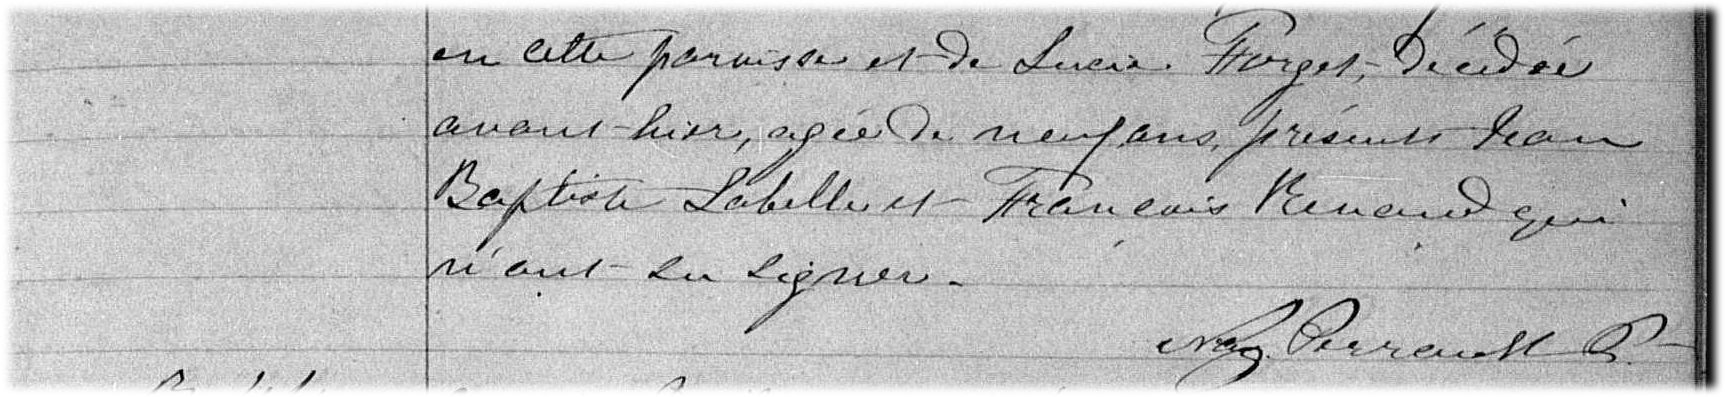 en cette paroisse et de Lucie Forget, décédée
avant-hier, agée de neuf ans, présents Jean
Baptiste Labelle et François Renaud qui
n'ont su signer.
Naz. Perrault P.